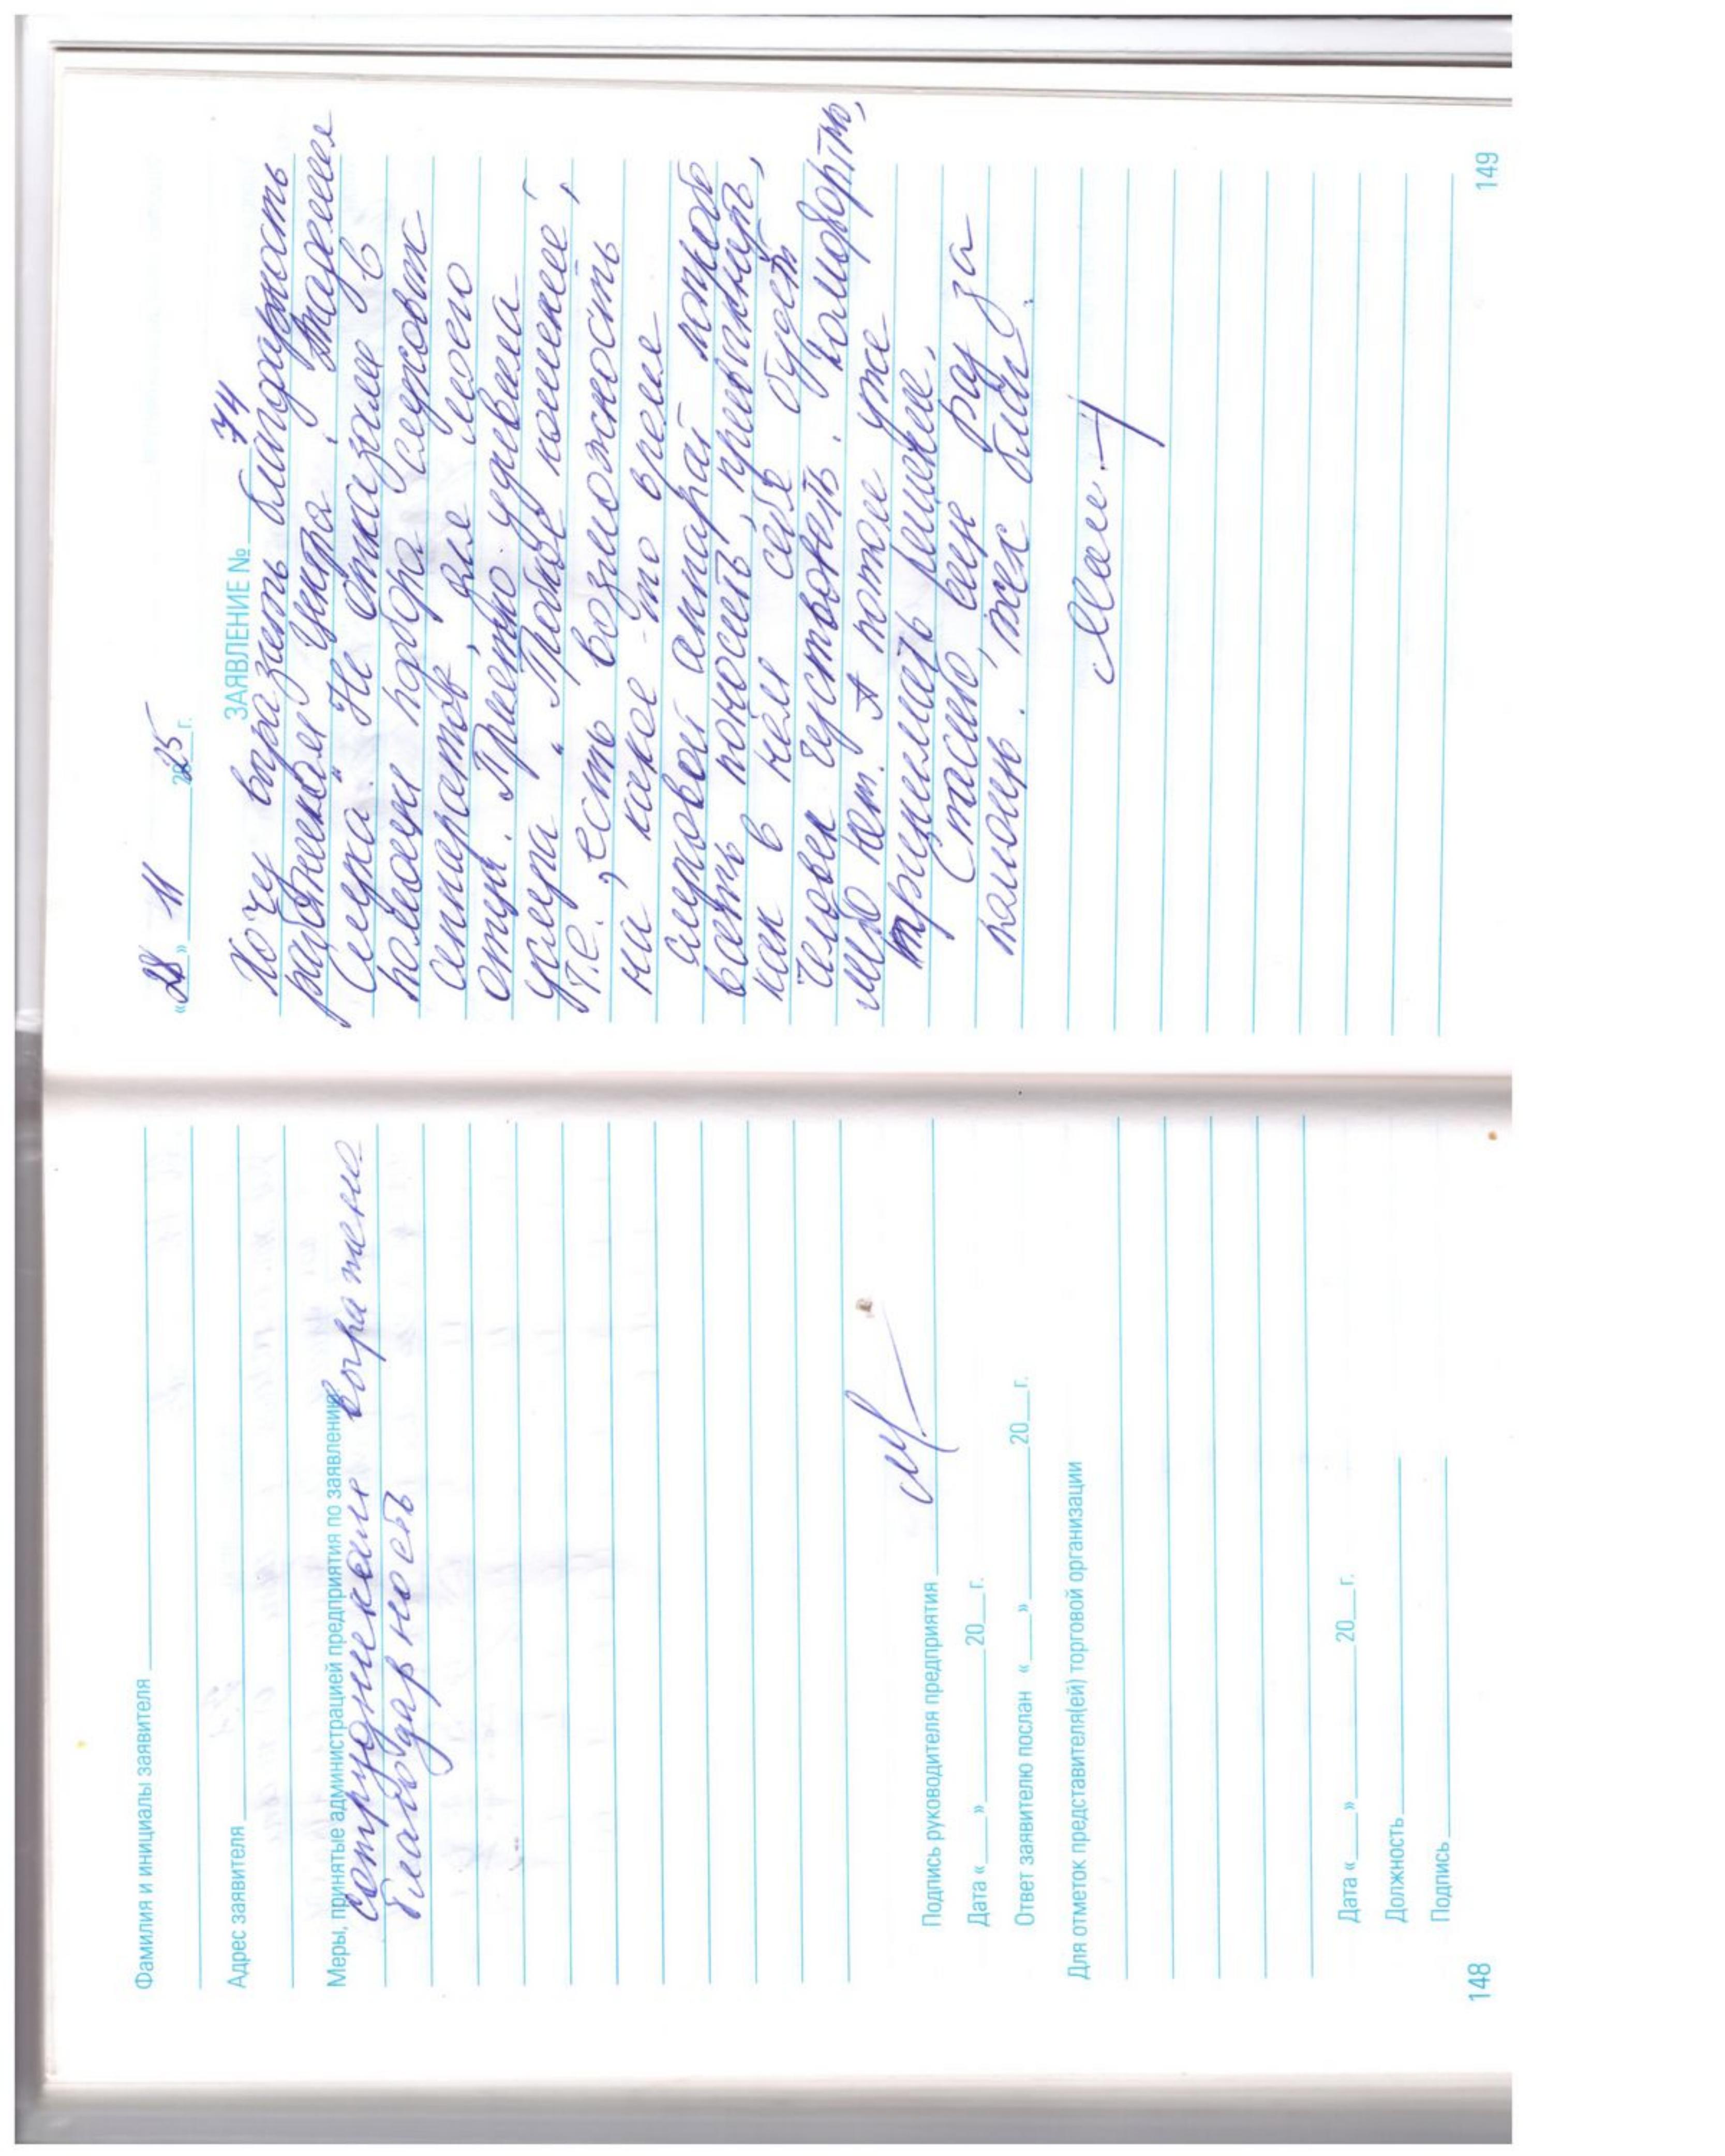 Фамилия и инициалы заявителя
Адрес заявителя
Меры, принятые администрацией предприятия по заявлению:
сотрудникам выражена
благодарность
Подпись руководителя предприятия
Дата «___» 20__г.
Ответ заявителю послан «___» 20__г.
Для отметок представителя(ей) торговой организации
Дата «___» 20__г.
Должность
Подпись
148
«28» 11 2025 г.
ЗАЯВЛЕНИЕ № 74
Хочу выразить благодарность
работникам центра „Академия
Слуха“. Не отказали в
помощи подбора слуховых
аппаратов, для моего
отца. Приятно удивила
услуга „Пробное ношение“,
т.е., есть возможность
на какое-то время
слуховой аппарат
взять поносить, привыкнуть,
как в нём себе будет
человек чуствовать. Комфортно,
либо нет. А потом уже
принимать решение.
Спасибо, еще раз за
помощь.
149